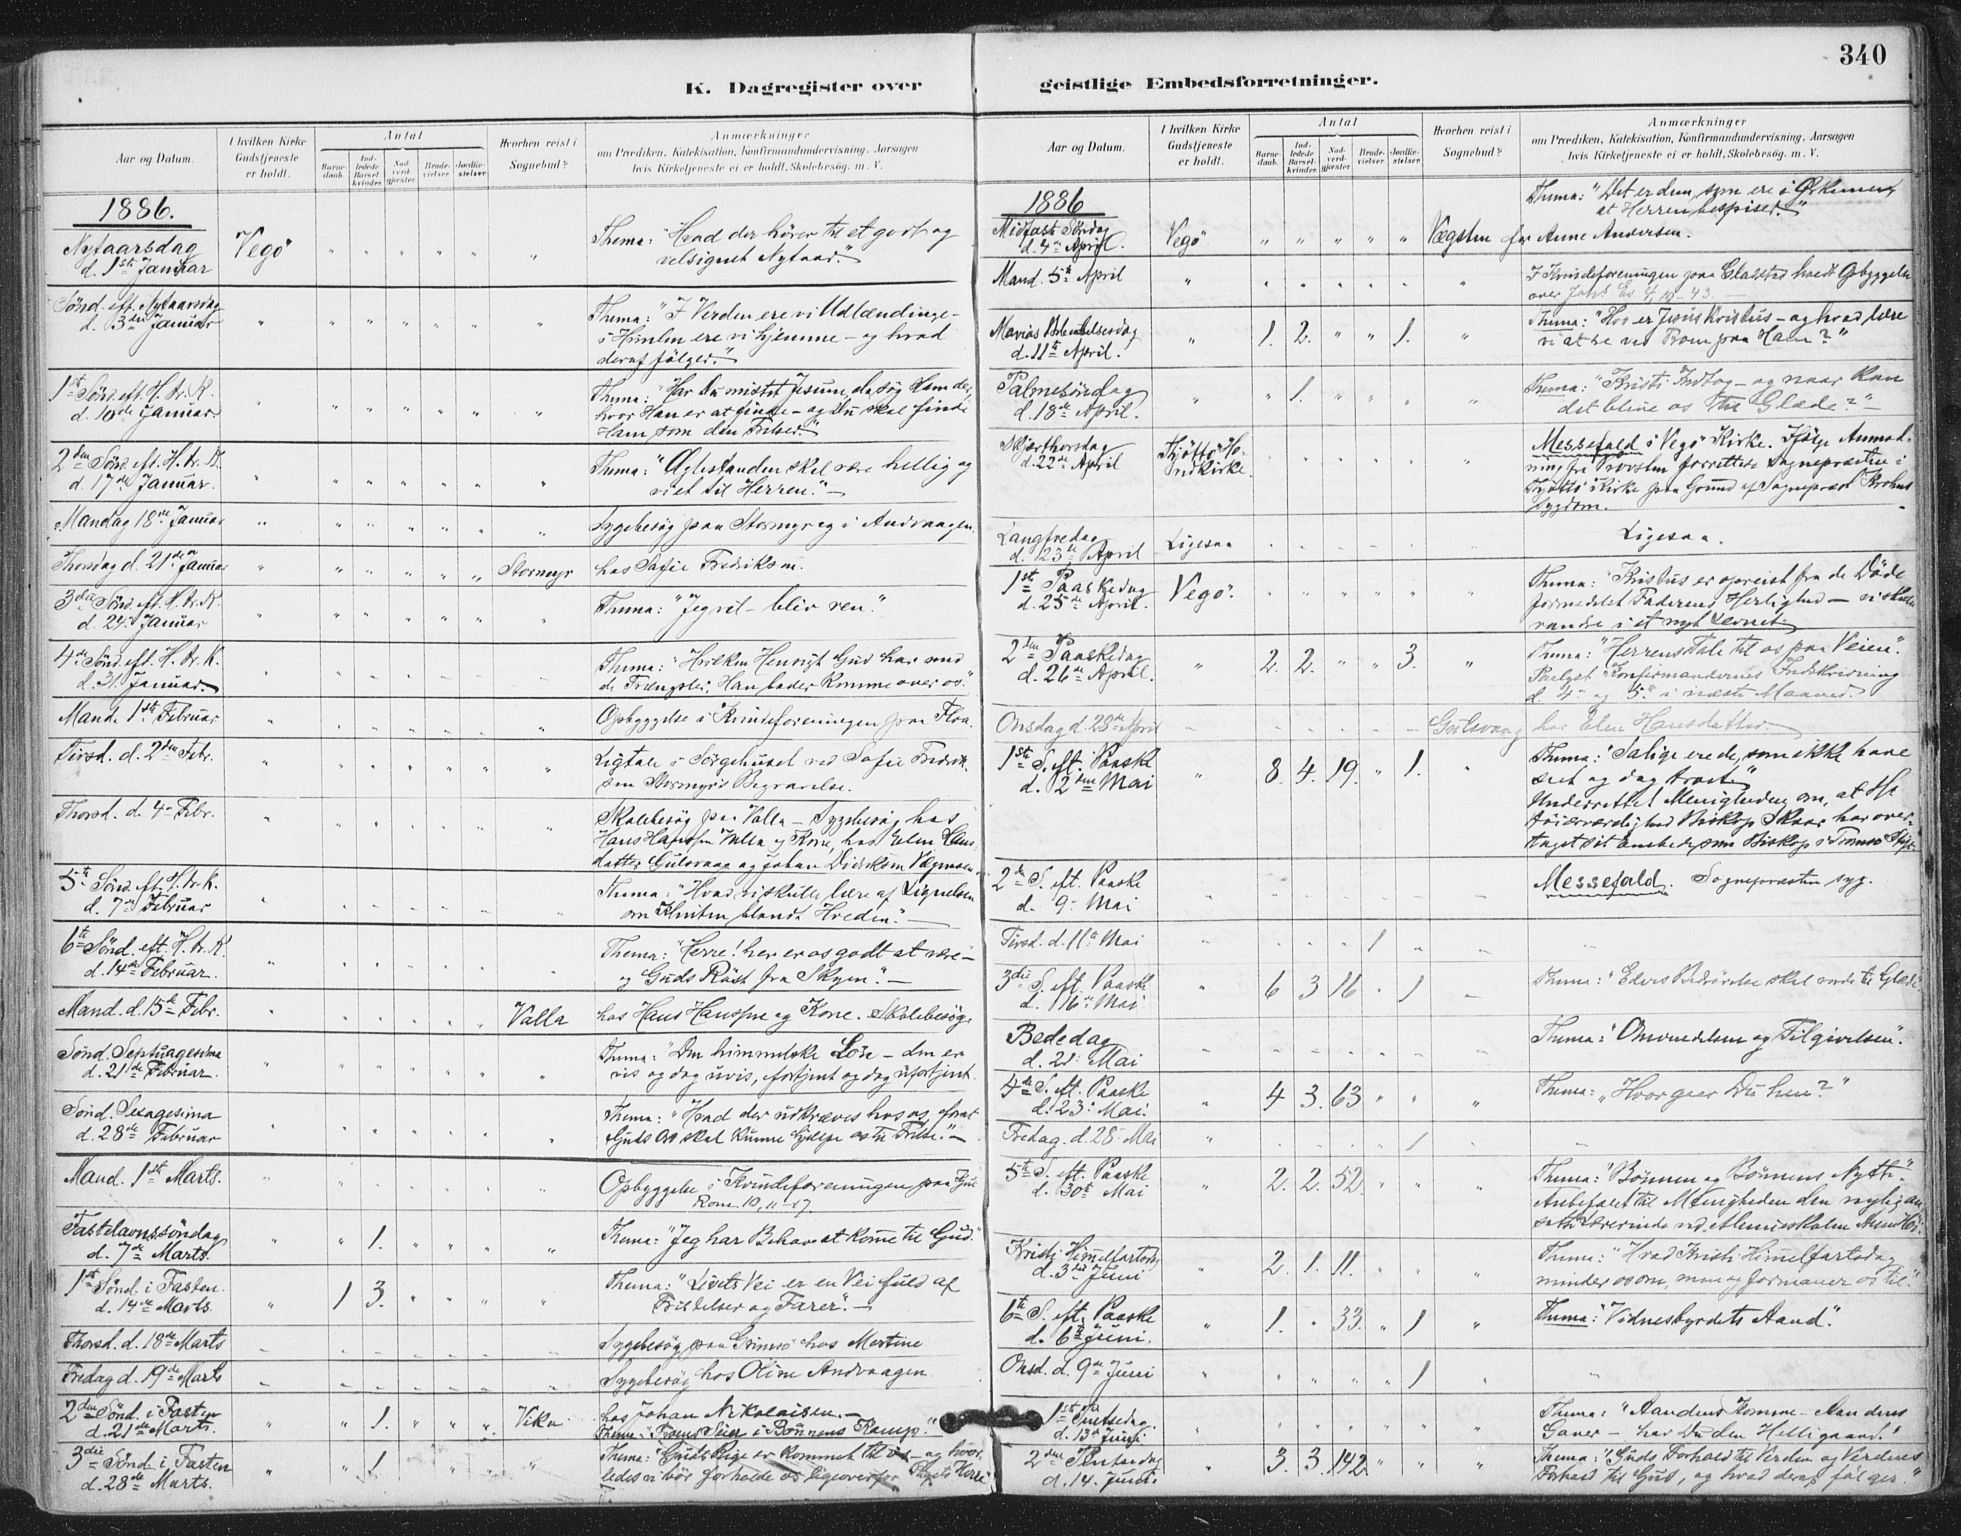 340
K. Dagregister over geistlige Embedsforretninger.
Aar og Datum.
I hvilken Kirke Gudstjeneste er holdt.
Antal
Barnedaab.
Indledede Barselkvinder.
Nadverdgjester.
Brudevielser.
Jordfæstelser.
Hvorhen reist i Sognebud?
Anmærkninger
om Prædiken, Katekisation, Konfirmandundervisning, Aarsagen
hvis Kirketjeneste ei er holdt, Skolebesøg. m. V.
1886.
Nytaarsdag
d. 1ste Januar
Vegö
Thema: "Hvad der hörer til et godt og
velsignet Nytaar."
Sönd. eft. Nytaarsdag
d. 3die Januar
Thema: "I Verden ere vi Udlændinge -
i Himlen ere vi hjemme - og hvad
deraf fölger."
1ste Sönd. eft. H. tr. K.
d. 10de Januar
Thema: "Har Du mistet Jesum, da sög Ham der,
hvor Han er at finde - og Du skal finde
Ham, som den Frelser."
2den Sönd. eft. H. tr. K.
d. 17de Januar.
Thema: "Ægtestanden skal være hellig og
viet til Herren." -
Mandag 18de Januar
Sygebesög paa Stormyr og i Andvaagen.
Thorsdag d. 21de Januar
Stormyr
hos Sofie Fredriksen.
3die Sönd. eft. H. tr. K.
d. 24. Januar
Thema: "Jeg vil - bliv ren."
4de Sönd. eft. H. tr. K.
d. 31. Januar.
Thema: "Hvilken Hensigt Gud har med
de Trængsler, Han lader komme over os."
Mand. 1ste Februar
Opbyggelse i Kvindeforeningen paa Floa.
Tirsd. d. 2den Febr.
Ligtale i Sörgehuset ved Sofie Fredrik-
sen Stormyrs Begravelse.
Thorsd. d. 4de Febr.
Skolebesög paa Valla - Sygebesög hos
Hans Hanssen Valla og Kone, hos Elen Hans-
datter Gulsvaag og Johan Didriksen
5te Sönd. eft. H. tr. K.
d. 7de Februar
Thema: "Hvad vi skulle lære af Lignelsen
om Klinten blandt Hveden." -
6te Sönd. eft. H. tr. K.
d. 14de Februar.
Thema: "Herre! her er os godt at være -
og Guds Röst fra Skyen." -
Mand. d. 15de Febr.
Valla
hos Hans Hanssen og Kone. Skolebesög.
Sönd. Septuagesima
d. 21de Februar.
Thema: "Den himmelske Lön - den er
vis og dog uvis, fortjent og dog ufortjent.
Sönd. Sexagesima
d. 28de Februar
Thema: "Hvad der udkræves hos os, forat
Guds Ord skal kunne hjælpe os til Frelse." -
Mand. 1ste Marts.
Opbyggelse i Kvindeforeningen paa
Rom. 10, 11-17.
Fastelavnssöndag
d. 7de Marts.
1.
Thema: "Jeg har Behov at komme til Gud."
1ste Sönd. i Fasten.
d. 14de Marts.
1 3.
Thema: "Livets Vei er en Vei fuld af
Fristelser og Farer." -
Thorsd. d. 18de Marts
Sygebesög paa Grimsö hos Martine
Fredag d. 19de Marts
Sygebesög hos Oline Andvaagen.
2den Sönd. i Fasten
d. 21de Marts.
1.
Viken
hos Johan Nikolaisen. -
Thema: "Troens Seier i Bönnens Kamp."
3die Sönd. i Fasten
d. 28de Marts.
1
Thema: "Guds Rige er kommet til os - og hvor-
ledes vi bör forholde os ligeoverfor
Aar og Datum.
I hvilken Kirke Gudstjeneste er holdt.
Antal
Barnedaab.
Indledede Barselkvinder.
Nadverdgjester.
Brudevielser.
Jordfæstelser.
Hvorhen reist i Sognebud?
Anmærkninger
om Prædiken, Katekisation, Konfirmandundervisning, Aarsagen
hvis Kirketjeneste ei er holdt, Skolebesøg. m. V.
1886
Midfaste Söndag
d. 4de April.
Vegö
Vægsten for Anne Andersen.
Thema: "Det er dem, som ere i Örkenen,
at Herren bespiser."
Mand. 5te April
I Kvindeforeningen paa holdt Opbyggelse
over Joh. Ev. 4, 43 -
Marias Bebudelsesdag
d. 11te April.
1. 2. 1.
Thema: "Hvo er Jesus Kristus - og hvad lære
vi at se ved Troen paa Ham?"
Palmesöndag
d. 18de April.
1.
Thema: "Kristi Indtog - og naar kan
det blive os til Glæde?" -
Skjærthorsdag
d. 22de April
Tjöttö Ho-
vedkirke.
Messefald i Vegö Kirke. Ifölge Anmod-
ning fra Provsten forrettede Sognepræsten i
Tjöttö Kirke paa Grund af Sognepræst
Sygdom.
Langfredag
d. 23de April
Ligesaa
Ligesaa.
1ste Paaskedag
d. 25de April.
Vegö.
Thema: "Kristus er opreist fra de Döde
formedelst Faderens Herlighed - vi skulle
vandre i et nyt Levnet.
2den Paaskedag
d. 26de April.
2. 2. 3.
Thema: "Herrens Tale til os paa Veien".
Konfirmandernes Indskrivning
d. 4de og 5te i næste Maaned
Onsdag d. 28de April
Gulsvaag
hos Elen Hansdatter
1ste S. eft. Paaske
d. 2den Mai
8. 4. 19. 1.
Thema: "Salige ere de, som ikke have
seet og dog troet."
Underrettet Menigheden om, at Hs.
Höiærværdighed Biskop Skaar har over-
taget sit Embede som Biskop i Tromsö Stift.
2den S. eft. Paaske
d. 9. Mai
Messefald. Sognepræsten syg.
Tirsd. d. 11te Mai
1
3die S. eft. Paaske
d. 16de Mai
6 3 16 1
Thema: "Eders Bedrövelse skal vorde til Glæde"
Bededag
d. 21. Mai
Thema: "Omvendelsen og Tilgivelsen".
4de S. eft. Paaske
d. 23. Mai.
4 3. 63
Thema: "Hvor gaar Du hen?"
Fredag. d. 28. Mai
1
5te S. eft. Paaske
d. 30te Mai
2. 2. 52
Thema: "Bönnen og Bönnens Nytte."
Anbefalet til Menigheden den nylig an-
satte Lærerinde ved Almueskolen
Kristi Himmelfartsdag
d. 3die Juni
2. 1. 11.
Thema: "Hvad Kristi Himmelfartsdag
minder os om, og formaner os til"
6te S. eft. Paaske
d. 6te Juni.
1. 33. 1
Thema: "Vidnesbyrdets Aand".
Onsd. d. 9de Juni
1
1ste Pintsedag
d. 13de Juni
Thema: "Aandens Komme - Aandens
Gaver - har Du den Helligaand."
2den Pintsedag
d. 14. Juni.
3. 3. 142
Thema: "Guds Forhold til Verden og Verdens
Forhold til Gud, og hvad deraf fölger."